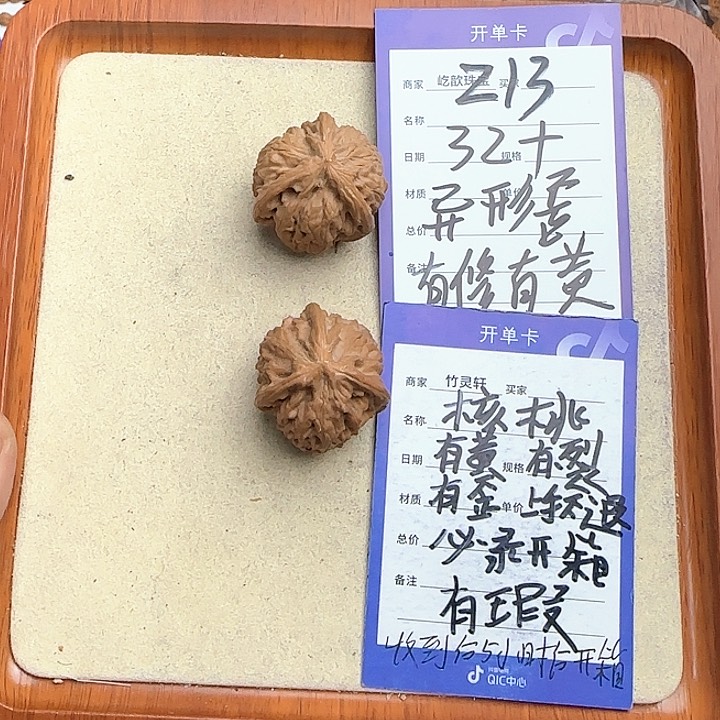 开单卡
商家 屹歆珠宝 买家 213
名称
日期 32十 规格
材质 异形蛋 单价
总价
备注 有修有黄
开单卡
商家 竹灵轩 买家
名称 核桃
日期 有黄 规格 有裂
材质 有歪 单价 不退
总价 必录开箱
备注 有瑕
收到后5小时后开箱
QIC中心